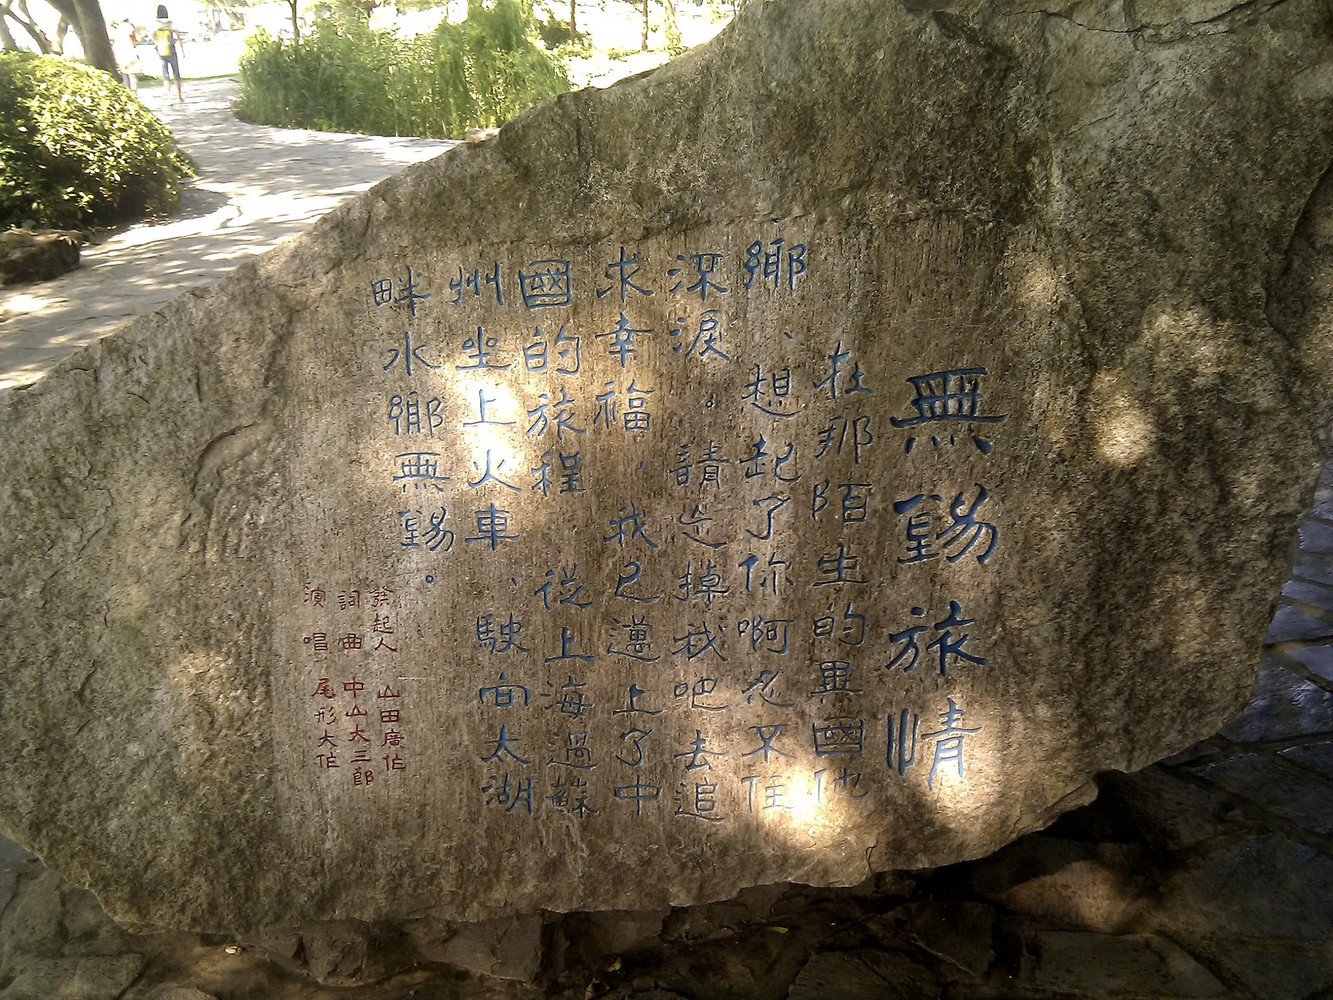 無錫旅情
在那陌生的異國他
鄉、想起了你啊忍不住
深淚。請忘掉我吧去追
求幸福，我已邁上了中
國的旅程 從上海過蘇
州坐上火車、駛向太湖
畔水鄉無錫。
發起人 山田廣佐
詞曲 中山大三郎
演唱 尾形大作